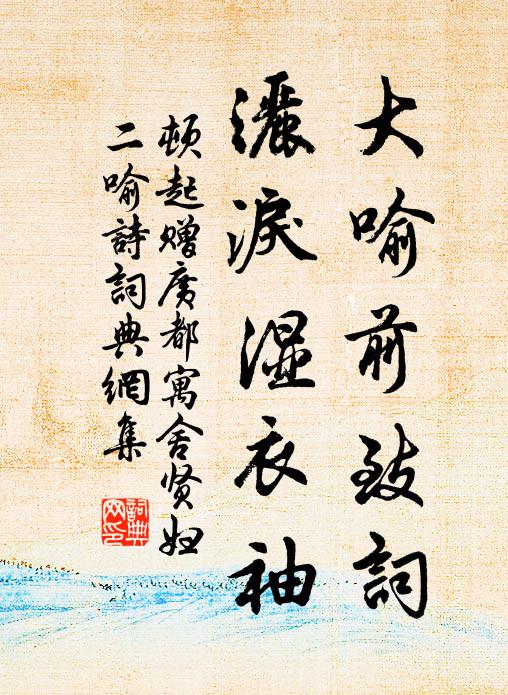 大喻前致詞
灑淚濕衣袖
頓起贈廣都寓舍贤妲
二喻詩詞典網集
詞典
网印